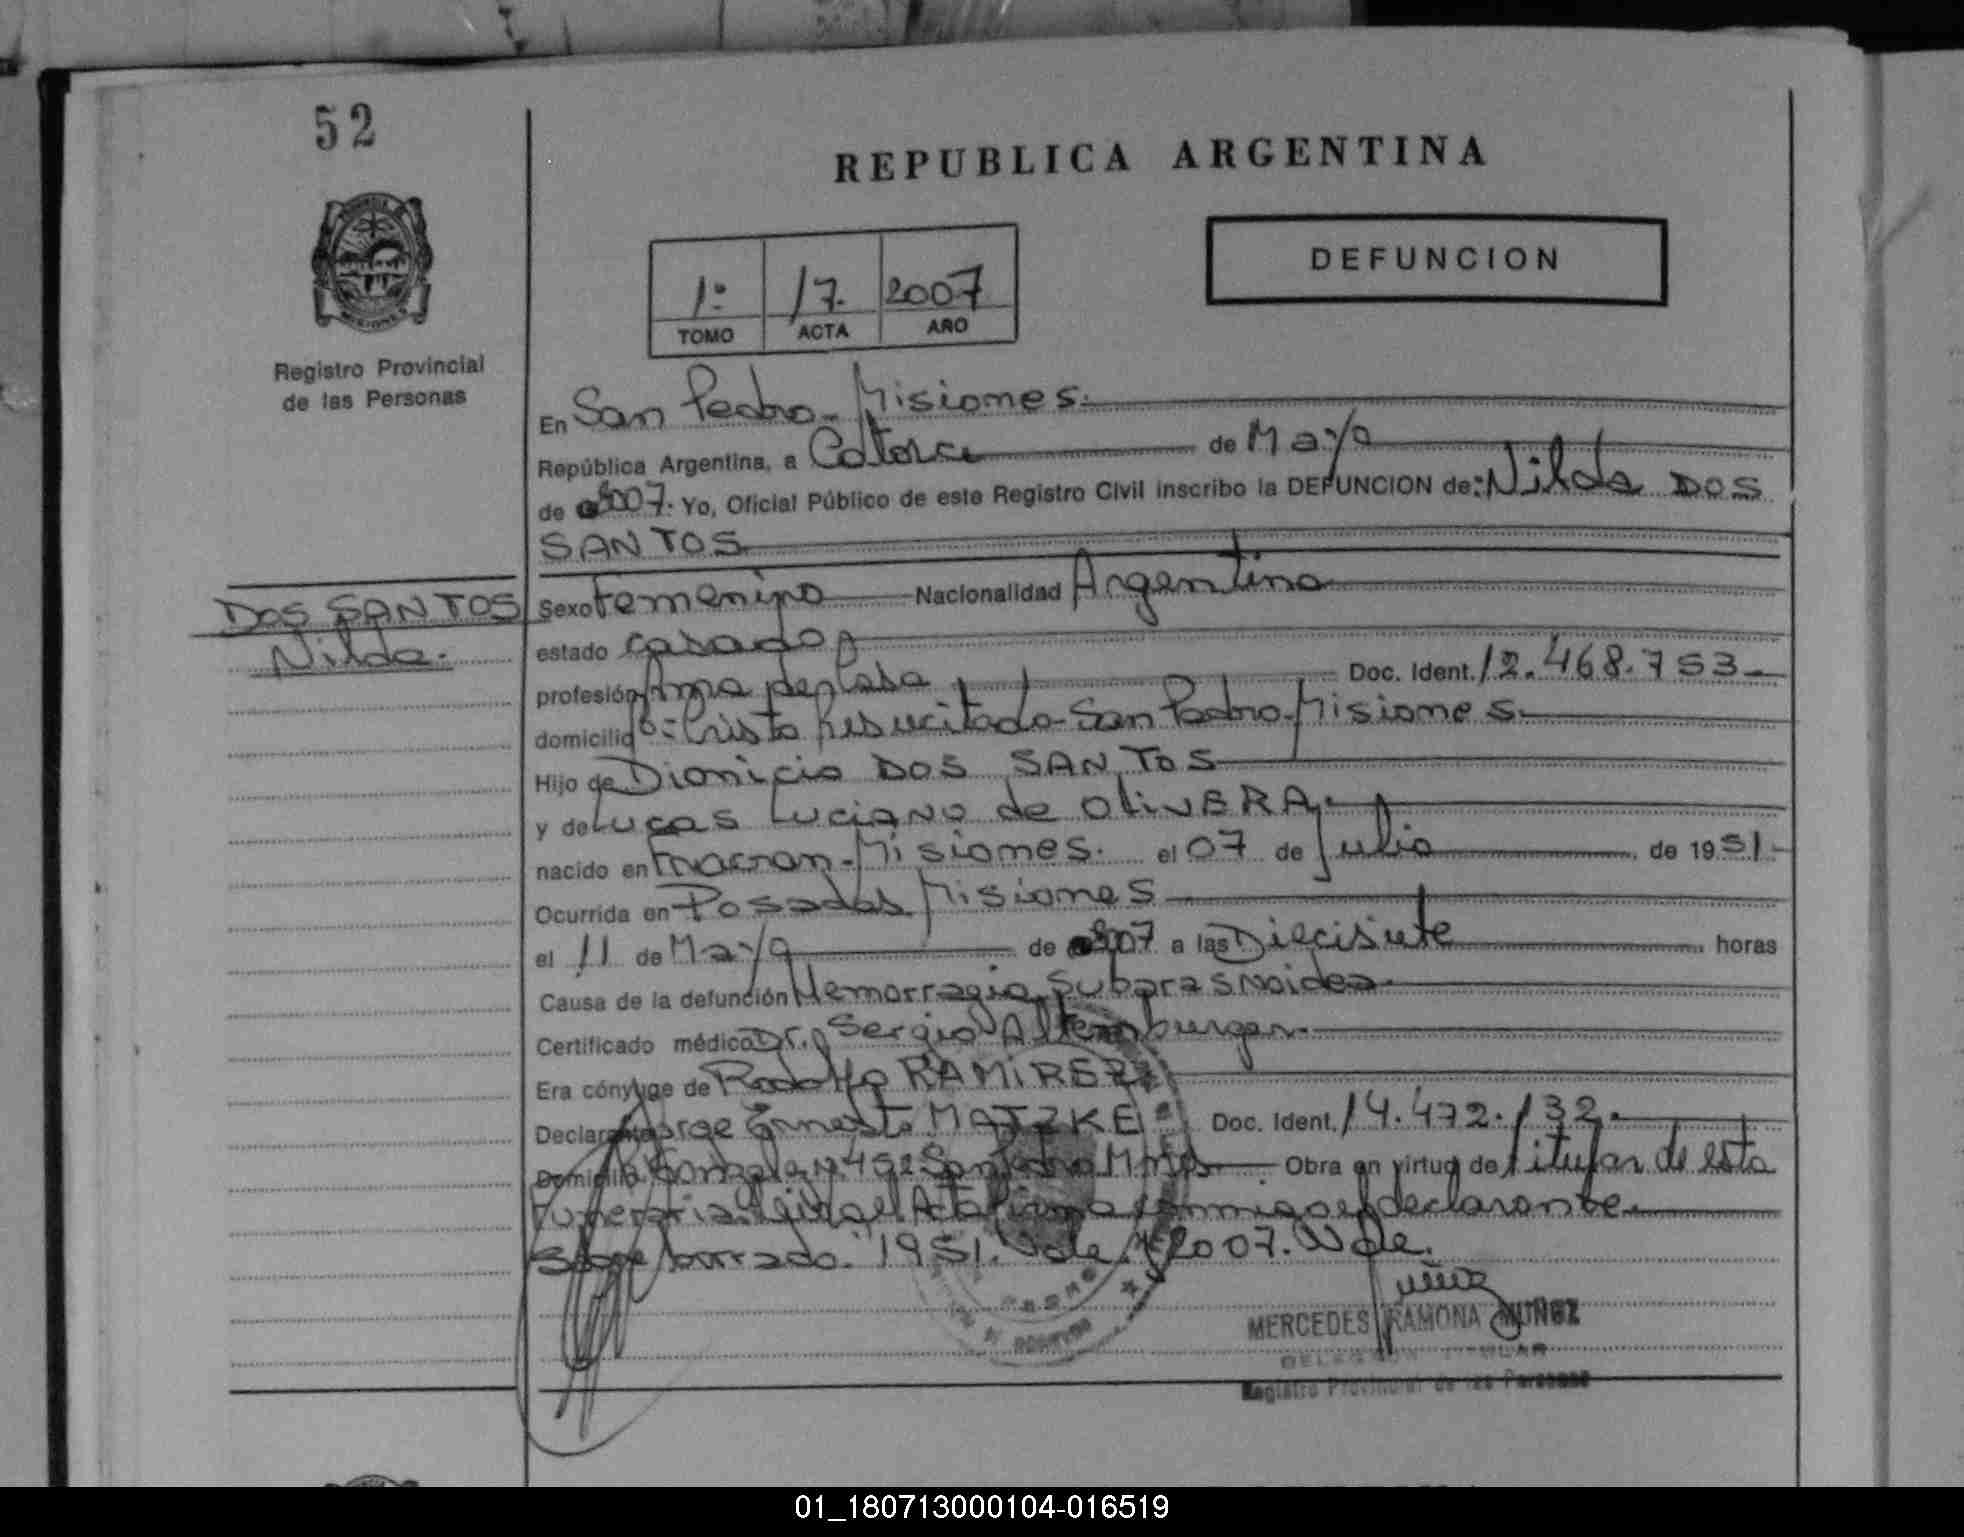 52
REPUBLICA ARGENTINA
DEFUNCION
1º 17. 2007
TOMO ACTA AÑO
Registro Provincial
de las Personas
En San Pedro - Misiones.
República Argentina, a Catorce de Mayo
de 2007. Yo, Oficial Público de este Registro Civil inscribo la DEFUNCION de: Nilda DOS
SANTOS
DOS SANTOS
Nilda.
Sexo Femenino Nacionalidad Argentina
estado casada
profesión Ama de Casa Doc. Ident. 12.468.753
domicilio Bº: Cristo Resucitado - San Pedro - Misiones.
Hijo de Dionicio DOS SANTOS
y de Lucas Luciano de OliVERA.
nacido en Fracran - Misiones. el 07 de Julio de 1951
Ocurrida en Posadas Misiones
el 11 de Mayo de 2007 a las Diecisiete horas
Causa de la defunción Hemorragia Subarasnoidea
Certificado médico Dr. Sergio Altemburger.
Era cónyuge de Rodolfo RAMIREZ
Declarante Jorge Ernesto MATZKE Doc. Ident. 14.472.132.
Domicilio Nº 452 San Pedro Mnes Obra en virtud de titular de esta
Funeraria. Acta firma conmigo el declarante.
Sobre borrado. 1951. Vale. 2007. Vale.
MERCEDES RAMONA MUÑEZ
DELEGADA TITULAR
Registro Provincial de las Personas
01_180713000104-016519